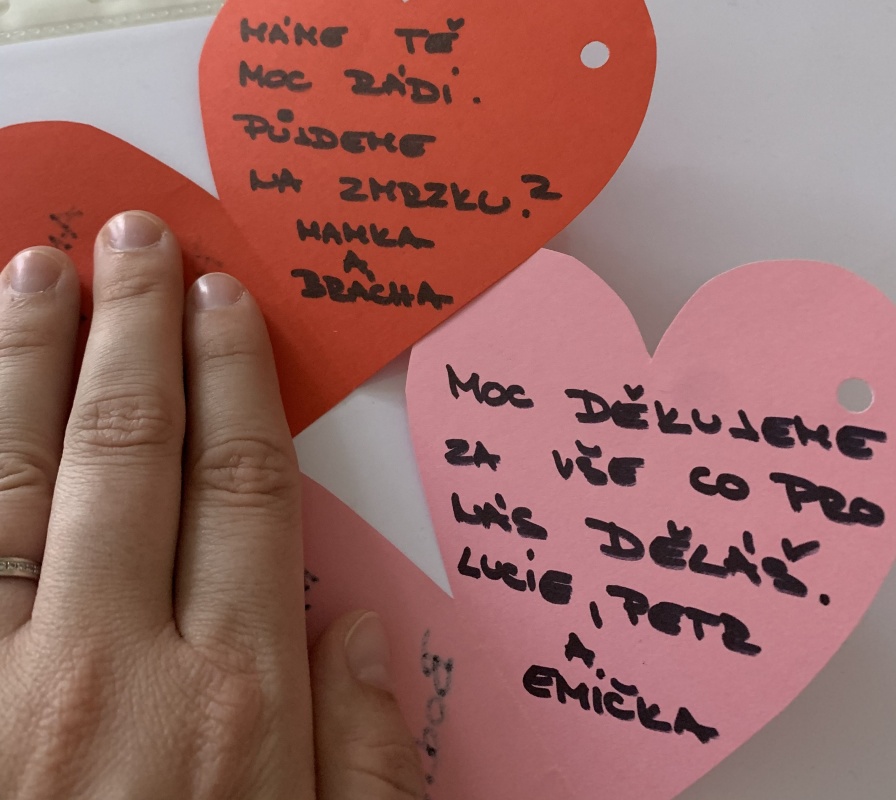 MÁME TĚ
MOC RÁDI.
PŮJDEME
NA ZMRZKU?
MAMKA
A
BRÁCHA
MOC DĚKUJEME
ZA VŠE CO PRO
NÁS DĚLÁŠ.
LUCIE, PETR
A
EMIČKA